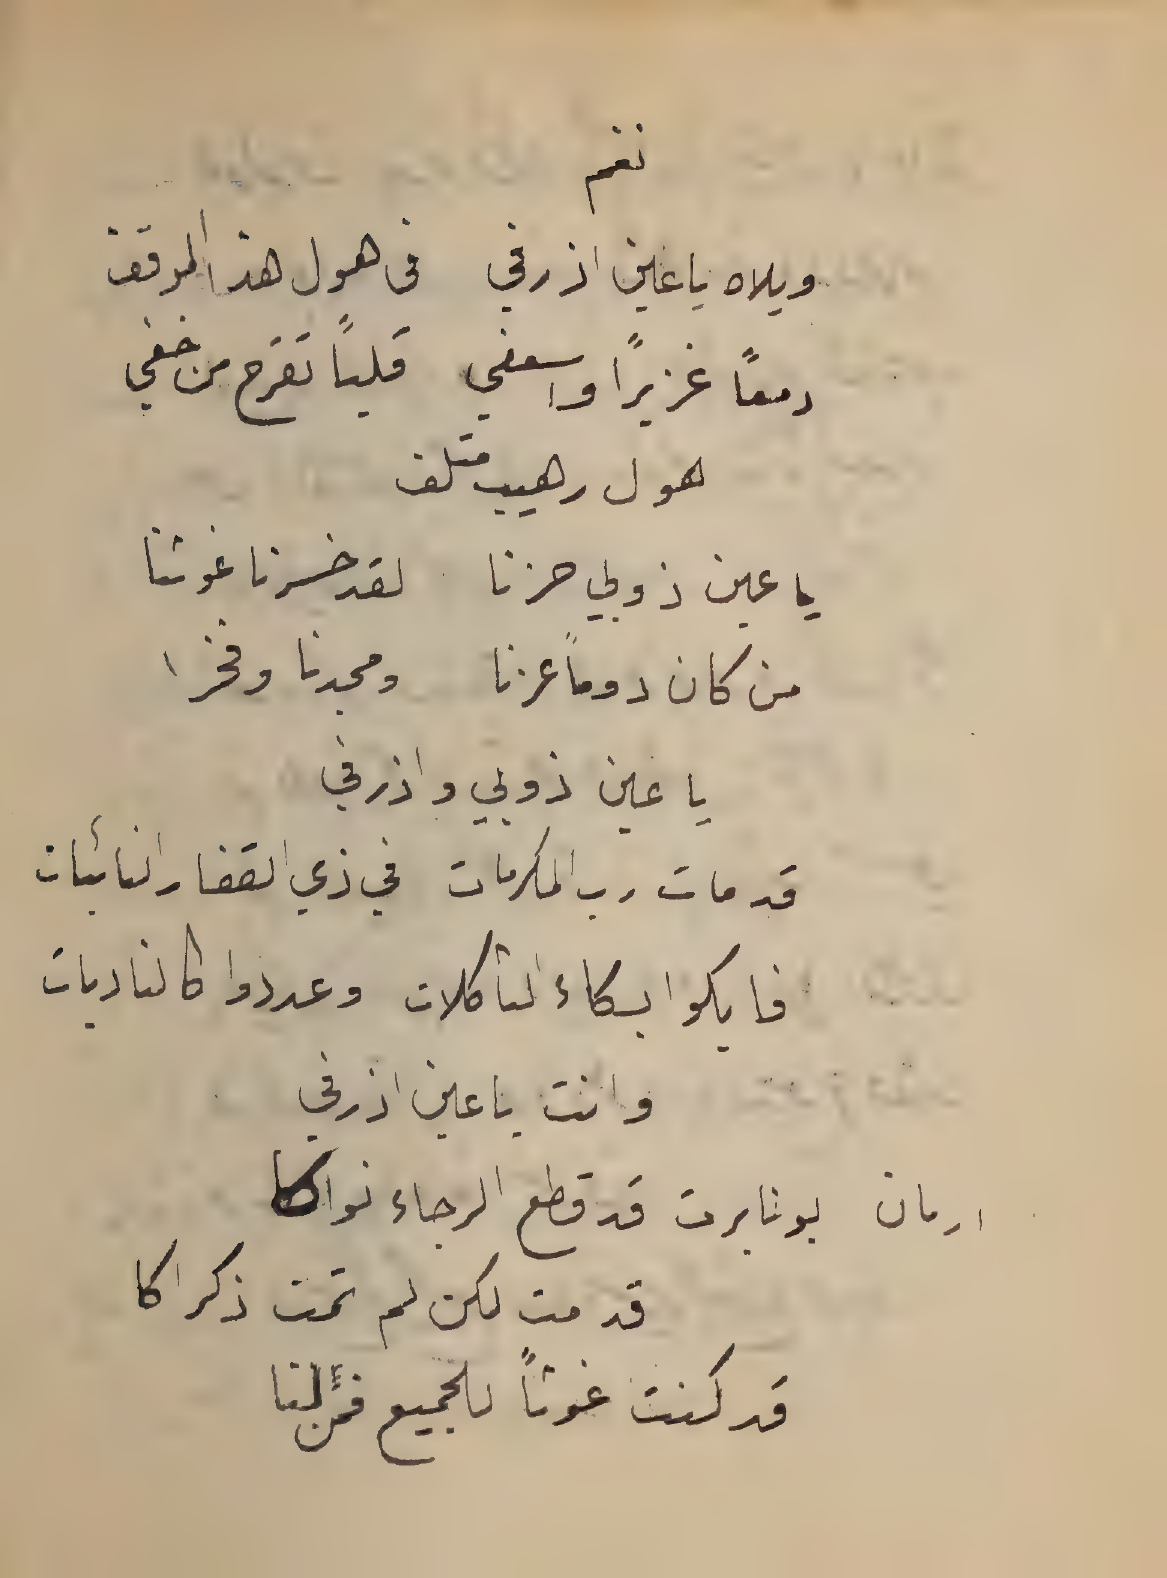 نغم
ويلاه يا عين اذرفي في هول هذا الموقف
دمعاً غزيرًا واسعفي قلباً تقرح من خفي
هول رهيب متلف
يا عين ذوبي حزنا لقد خسرنا غوثنا
من كان دوماً عزنا ومجدنا وفخرا
يا عين ذوبي واذرفي
قد مات رب المكرمات في ذي القفار النائبات
فابكوا بكاء الثاكلات وعددوا كالنادبات
وانت يا عين اذرفي
ارمان بونابرت قد قطع الرجاء نواكا
قد مت لكن لم تمت ذكراكا
قد كنت غوثاً للجميع فمن لنا